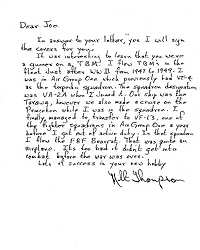 Dear Joe
In answer to your letter, yes I will sign
the covers for you.
It was interesting to learn that you were
a gunner on a TBM. I flew TBM's in the
fleet just after WWII from 1947 to 1949. I was
in Air Group One which previously had VT-4
as the torpedo squadron. The squadron designation
was VA-2A when I joined it. Our ship was the
Tarawa, however we also made a cruise on the
Princeton while I was in the squadron. I
finally managed to transfer to VF-13, one of
the fighter squadrons in Air Group One a year
before I got out of active duty. In that squadron
I flew the F8F Bearcat. That was quite an
airplane. It's too bad it didn't get into
combat before the war was over.
Lots of success in your new hobby
Bill Thompson